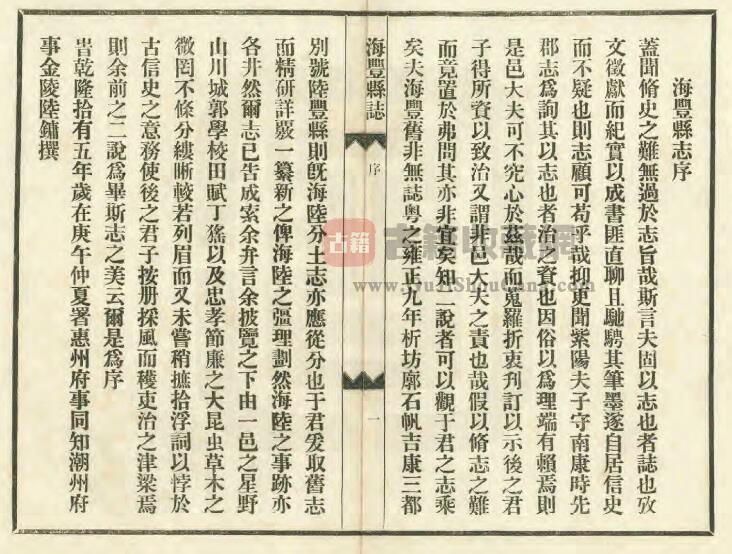 海豐縣志序
蓋聞脩史之難無過於志旨哉斯言夫固以志也者誌也攷
文徵獻而紀實以成書匪直聊且馳騁其筆墨遂自居信史
而不疑也則志顧可苟乎哉抑更聞紫陽夫子守南康時先
郡志為詢其以志也者治之資也因俗以為理端有賴焉則
是邑大夫可不究心於茲哉而蒐羅折衷刋訂以示後之君
子得所資以致治又謂非邑大夫之責也哉假以脩志之難
而竟置於弗問其亦非宜矣知二說者可以觀于君之志乘
矣夫海豐舊非無誌粵之雍正九年析坊廓石帆吉康三都
海豐縣誌
序
一
別號陸豐縣則旣海陸分土志亦應從分也于君爰取舊志
而精研詳覈一纂新之俾海陸之彊理劃然海陸之事跡亦
各井然爾志已告成索余弁言余披覽之下由一邑之星野
山川城郭學校田賦丁徭以及忠孝節廉之大昆虫草木之
微罔不條分縷晰較若列眉而又未嘗稍摭拾浮詞以悖於
古信史之意務使後之君子按册採風而穫吏治之津梁焉
則余前之二說為畢斯志之美云爾是為序
旹乾隆拾有五年歲在庚午仲夏署惠州府事同知潮州府
事金陵陸鏞撰
古籍
古籍收藏網
www.GuJiShouCang.com